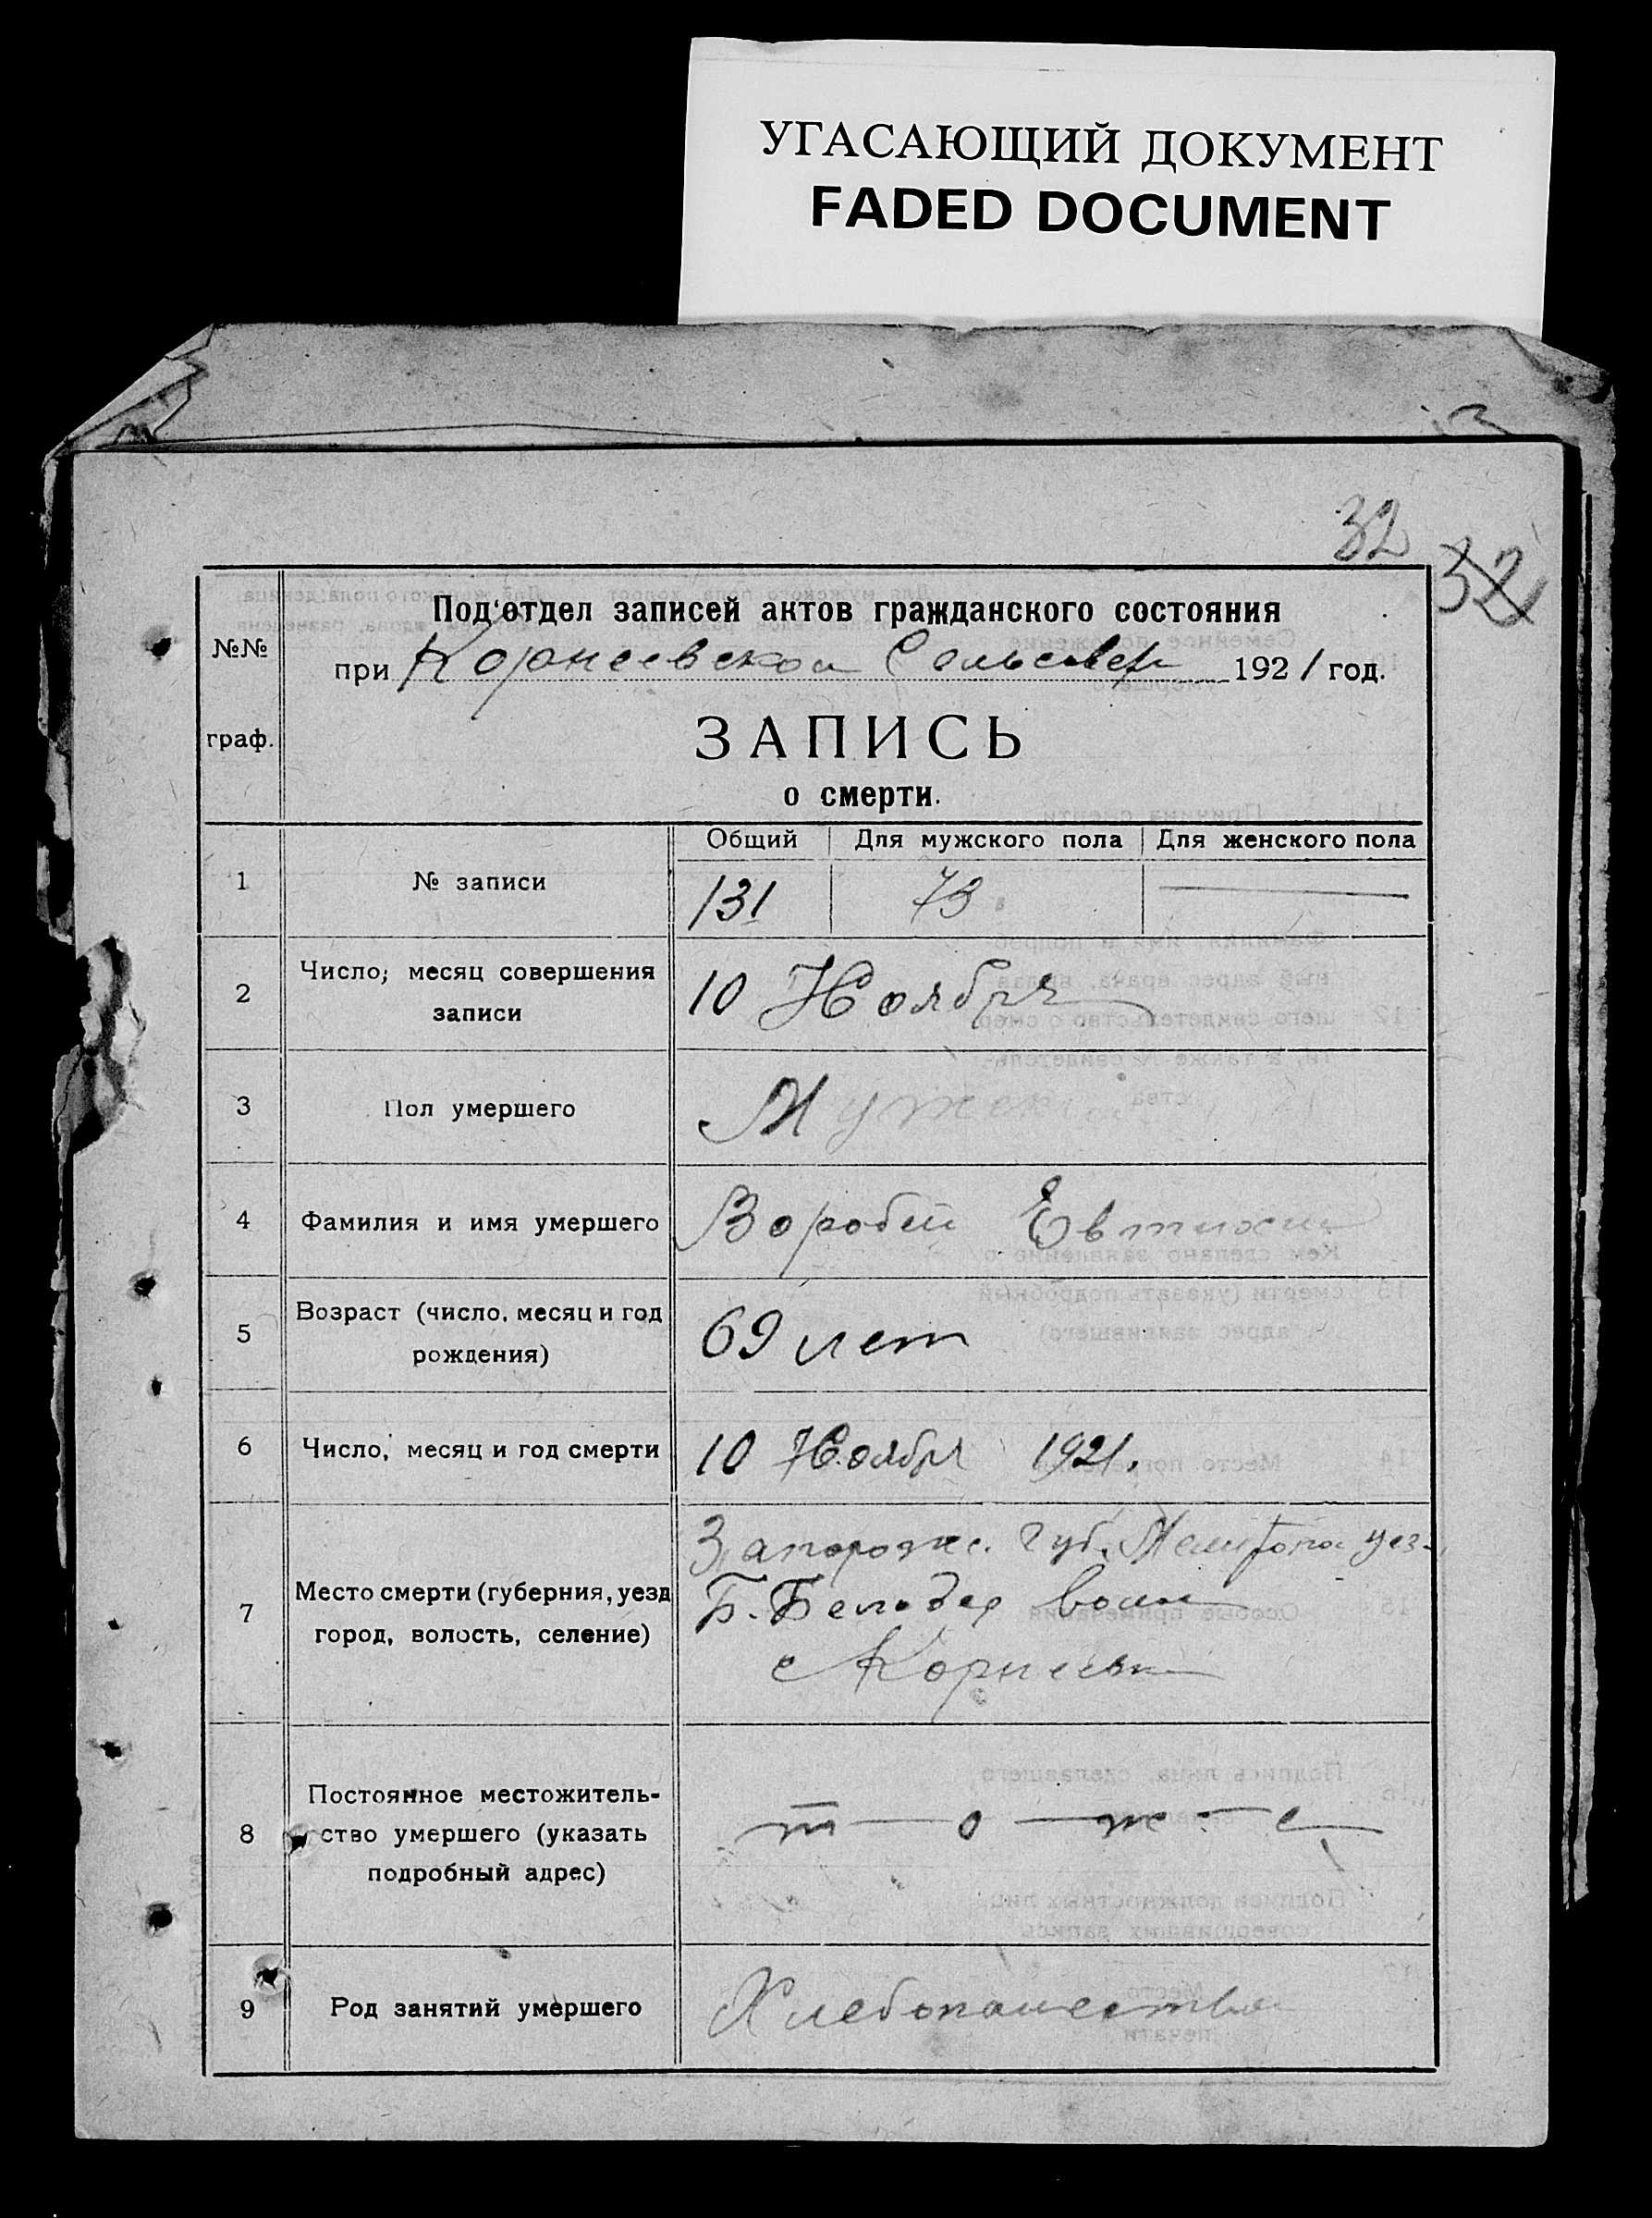 УГАСАЮЩИЙ ДОКУМЕНТ
FADED DOCUMENT
32
32
№№ граф.
Под'отдел записей актов гражданского состояния
при Корнеевском Сельсовет 1921 год.
ЗАПИСЬ
о смерти.
Общий Для мужского пола Для женского пола
1 № записи 131 73
2 Число, месяц совершения
записи 10 Ноября
3 Пол умершего Мужск
4 Фамилия и имя умершего Воробей Евтихий
5 Возраст (число, месяц и год
рождения) 69 лет
6 Число, месяц и год смерти 10 Ноября 1921.
7 Место смерти (губерния, уезд
город, волость, селение)
Запорожс. губ. Мелитопо уез.
Б. Белозер воло
с Корнеевк
8 Постоянное местожитель-
ство умершего (указать
подробный адрес)
т о ж е
9 Род занятий умершего Хлебопашество